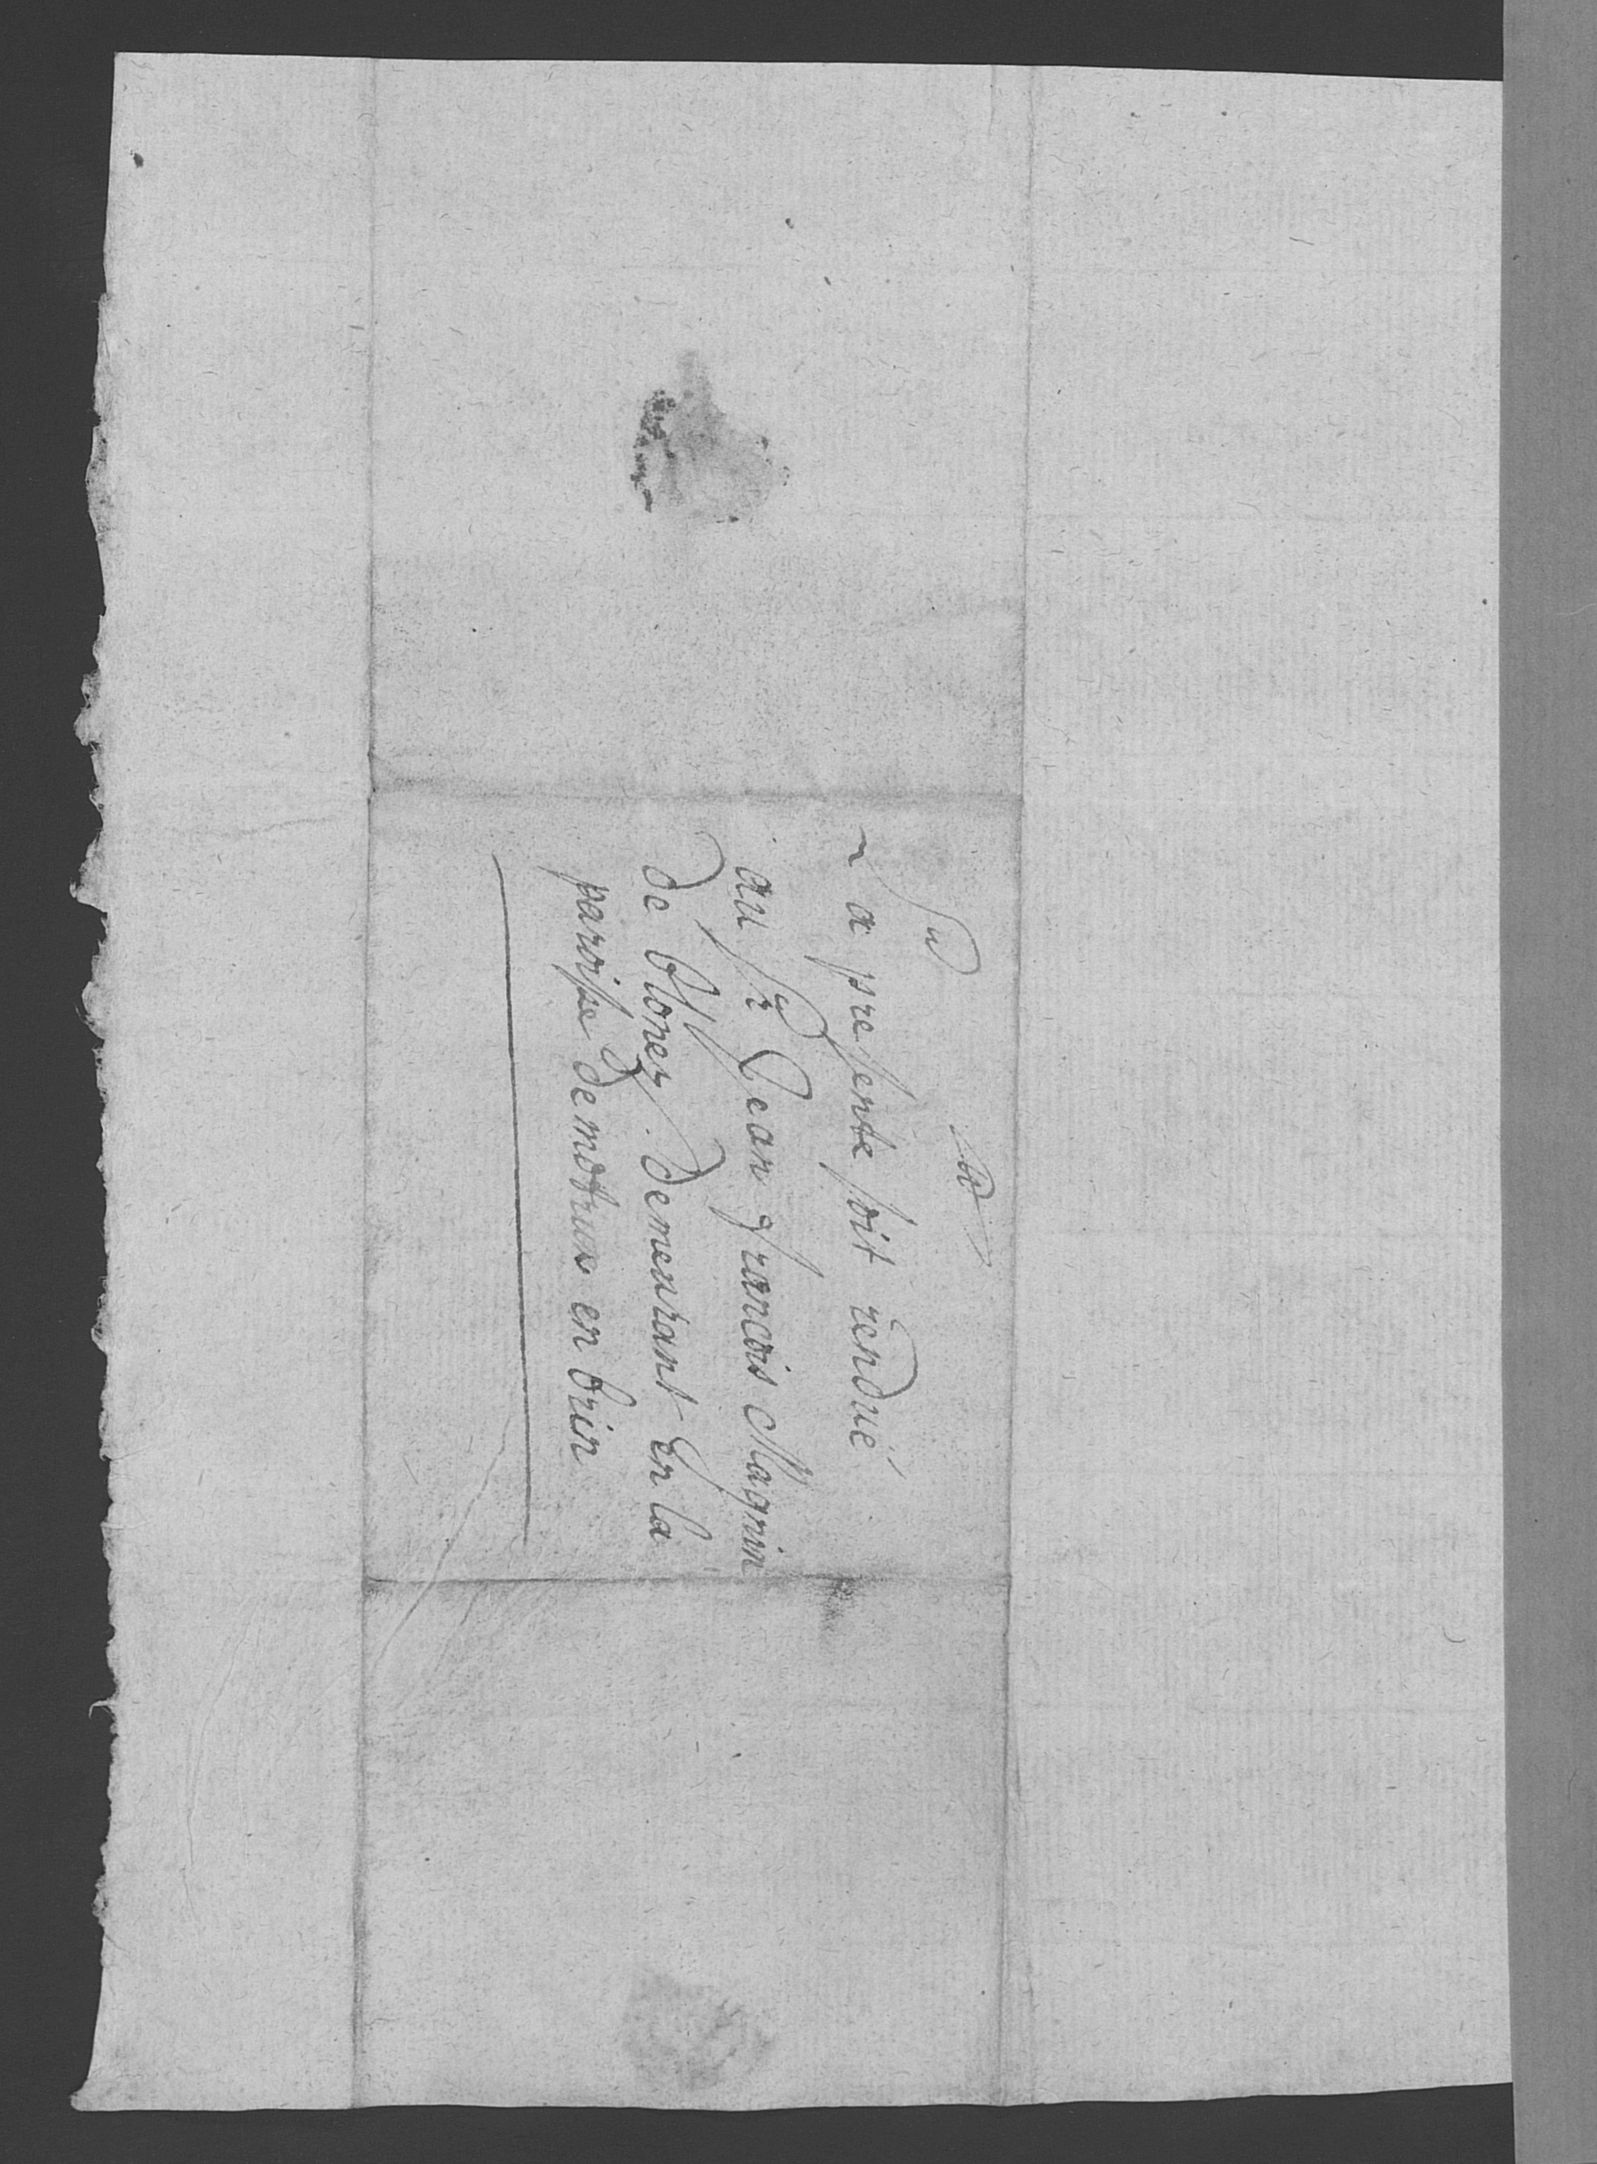 La presente soit rendué
au Sr Jean francois Magnin
de blonez. demeurant en la
paroisse de motrux en brin